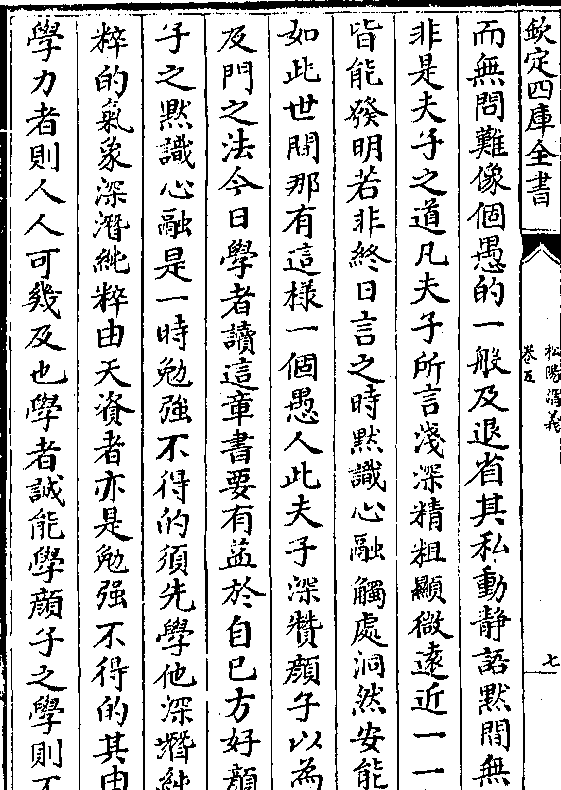 欽定四庫全書
松陽講義
卷五
七
而無問難像個愚的一般及退省其私動靜語默間無
非是夫子之道凡夫子所言淺深精粗顯微遠近一一
皆能發明若非終日言之時默識心融觸處洞然安能
如此世間那有這樣一個愚人此夫子深贊顏子以為
及門之法今日學者讀這章書要有益於自己方好顏
子之默識心融是一時勉強不得的須先學他深潛純
粹的氣象深潛純粹由天資者亦是勉强不得的其由
學力者則人人可幾及也學者誠能學顏子之學則不